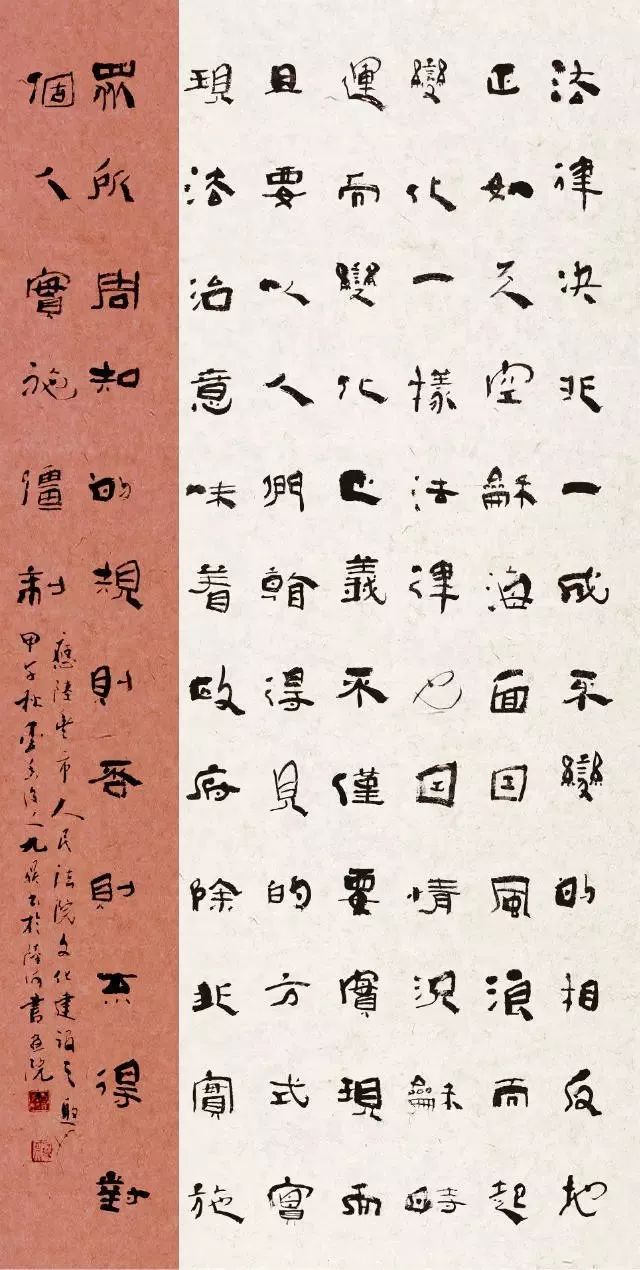 法律決非一成不變的相反地
正如天空龢海面因風浪而起
變化一樣法律也因情況龢時
運而變化正義不僅要實現而
且要以人們看得見的方式實
現法治意味着政府除非實施
眾所周知的規則否則不得對
個人實施彊制
應陸豐市人民法院文化建設之
甲午秋 九 書於陸河書畫院